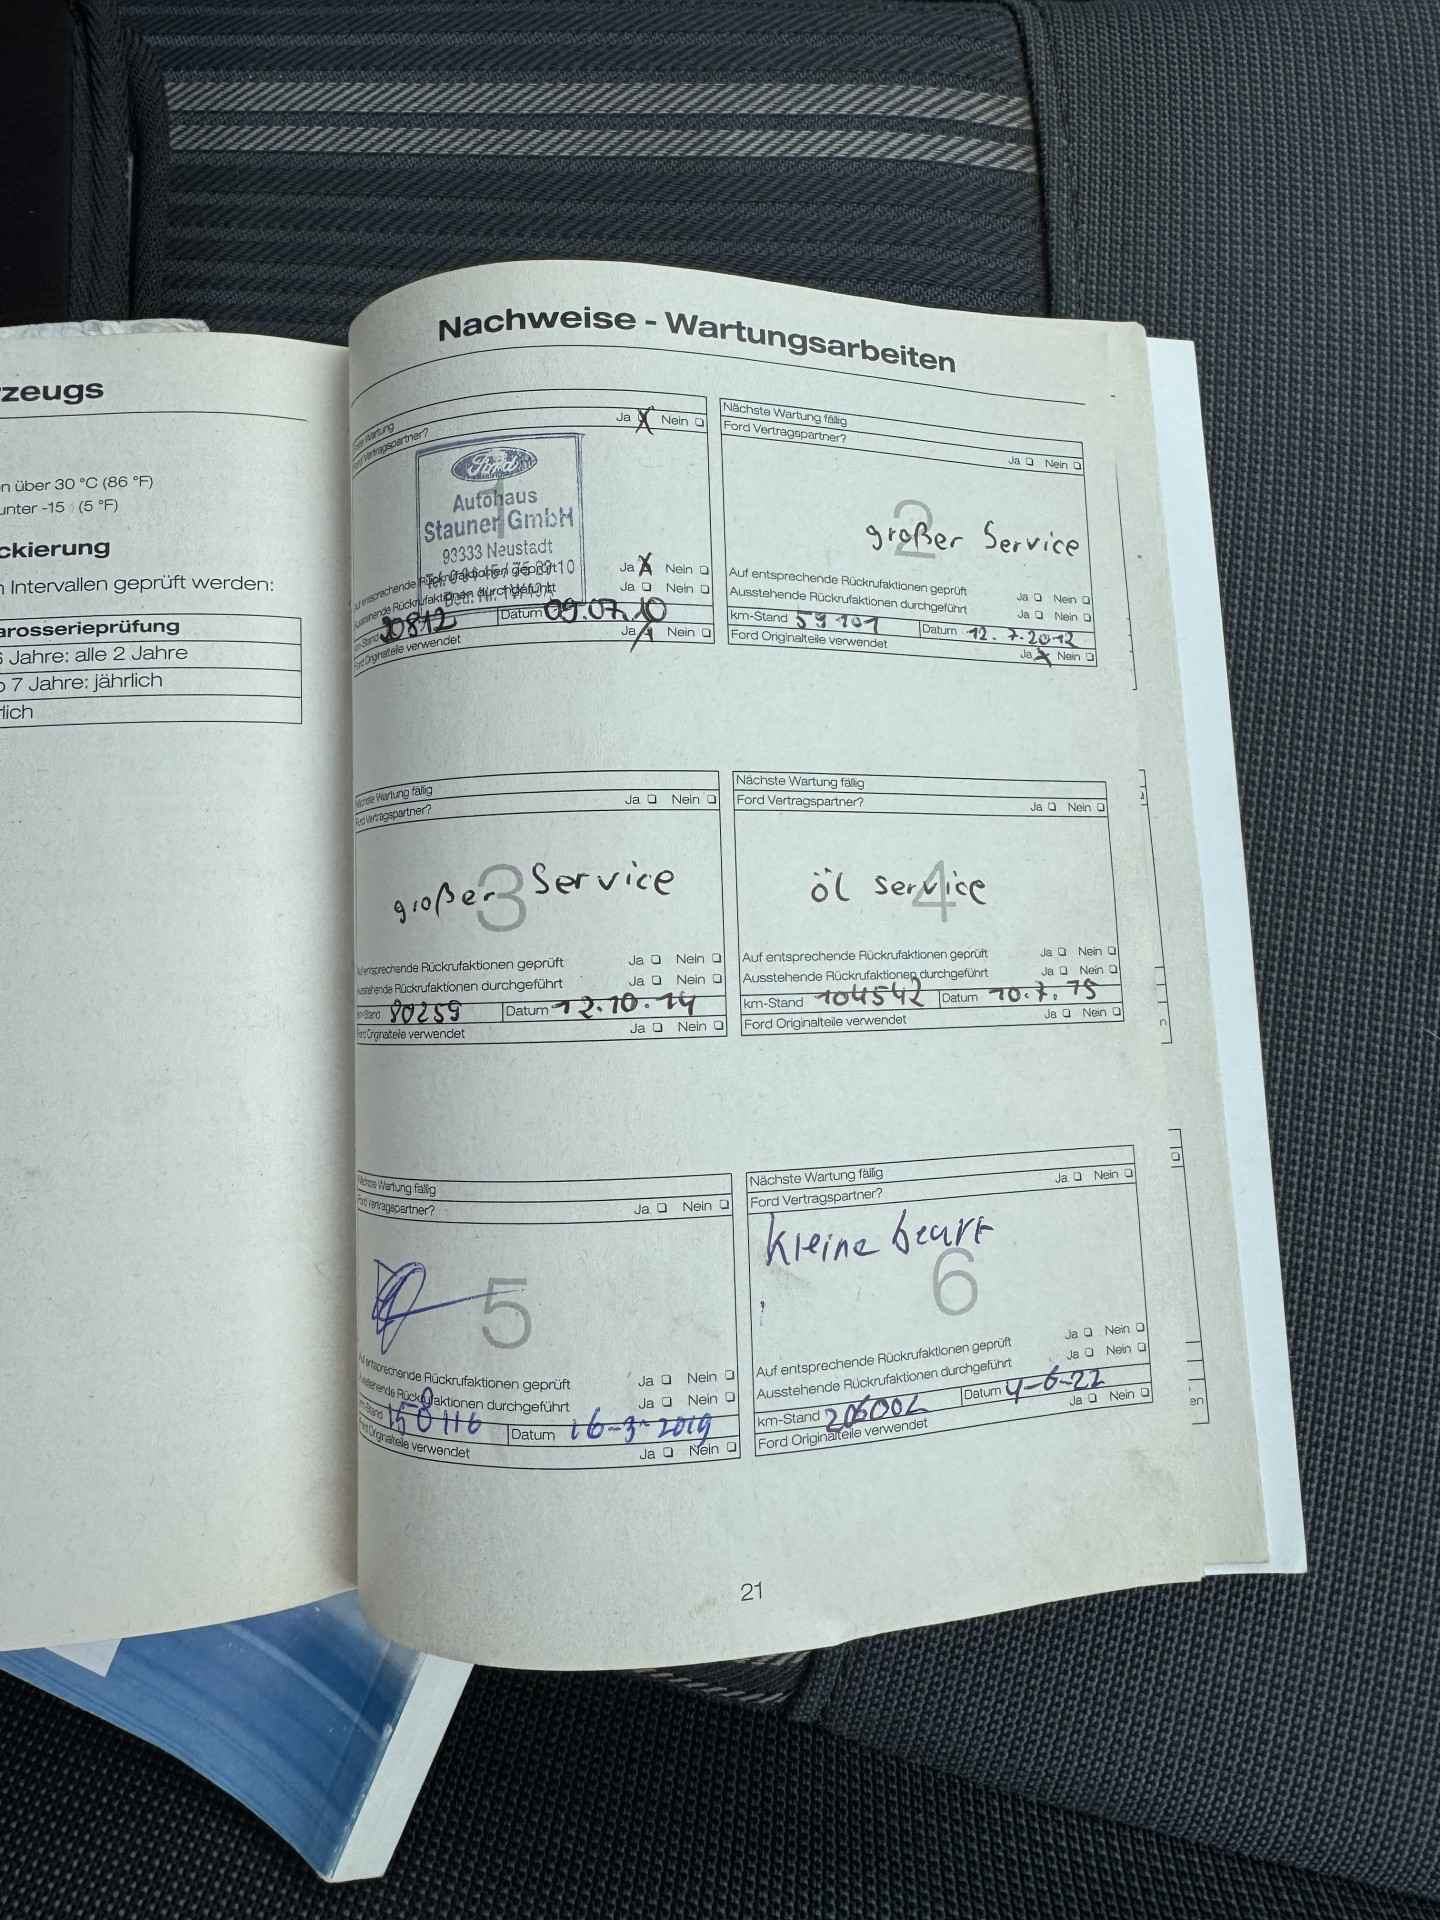 rzeugs
n über 30 °C (86 °F)
unter -15 (5 °F)
ckierung
n Intervallen geprüft werden:
arosserieprüfung
6 Jahre: alle 2 Jahre
7 Jahre: jährlich
lich
Nachweise - Wartungsarbeiten
Wartung
Ford Vertragspartner? Ja X Nein
1
Ford
Autohaus
Stauner GmbH
93333 Neustadt
Auf entsprechende Rückrufaktionen geprüft Ja X Nein
Ausstehende Rückrufaktionen durchgeführt Ja Nein
km-Stand 20812 Datum 09.07.10
Ford Originalteile verwendet Ja X Nein
Nächste Wartung fällig
Ford Vertragspartner? Ja Nein
2
großer Service
Auf entsprechende Rückrufaktionen geprüft Ja Nein
Ausstehende Rückrufaktionen durchgeführt Ja Nein
km-Stand 59101 Datum 12.7.2012
Ford Originalteile verwendet Ja X Nein
Nächste Wartung fällig
Ford Vertragspartner? Ja Nein
3
großer Service
Auf entsprechende Rückrufaktionen geprüft Ja Nein
Ausstehende Rückrufaktionen durchgeführt Ja Nein
km-Stand 80259 Datum 12.10.14
Ford Originalteile verwendet Ja Nein
Nächste Wartung fällig
Ford Vertragspartner? Ja Nein
4
öl service
Auf entsprechende Rückrufaktionen geprüft Ja Nein
Ausstehende Rückrufaktionen durchgeführt Ja Nein
km-Stand 104542 Datum 10.7.15
Ford Originalteile verwendet Ja Nein
Nächste Wartung fällig
Ford Vertragspartner? Ja Nein
5
Auf entsprechende Rückrufaktionen geprüft Ja Nein
Ausstehende Rückrufaktionen durchgeführt Ja Nein
km-Stand 158116 Datum 16-3-2019
Ford Originalteile verwendet Ja Nein
Nächste Wartung fällig
Ford Vertragspartner? Ja Nein
kleine
6
Auf entsprechende Rückrufaktionen geprüft Ja Nein
Ausstehende Rückrufaktionen durchgeführt Ja Nein
km-Stand 206002 Datum 4-6-22
Ford Originalteile verwendet Ja Nein
n
en
21